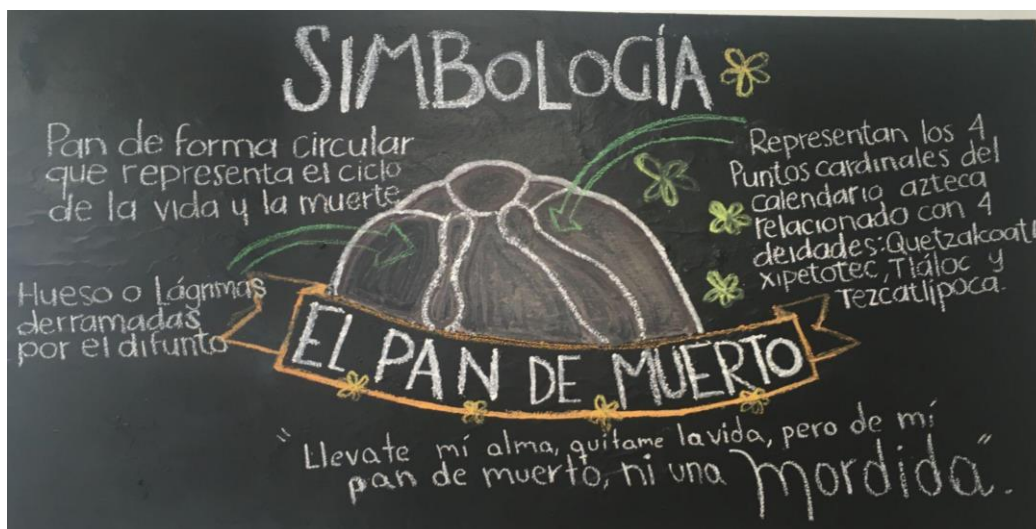 SIMBOLOGÍA
Pan de forma circular
que representa el ciclo
de la vida y la muerte
Hueso o Lágrimas
derramadas
por el difunto
Representan los 4
Puntos cardinales del
calendario azteca
relacionado con 4
deidades: Quetzalkoatl
xipetotec, Tláloc y
Tezcatlipoca.
EL PAN DE MUERTO
"Llevate mi alma, quítame la vida, pero de mí
pan de muerto, ni una mordida".